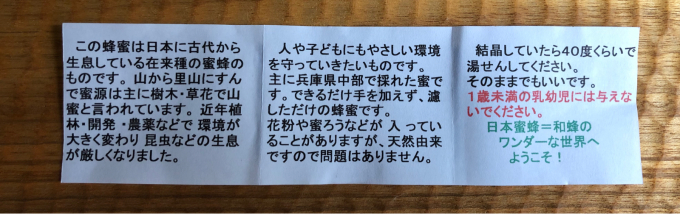 この蜂蜜は日本に古代から
生息している在来種の蜜蜂の
ものです。山から里山にすん
で蜜源は主に樹木・草花で山
蜜と言われています。近年植
林・開発・農薬などで 環境が
大きく変わり 昆虫などの生息
が厳しくなりました。
人や子どもにもやさしい環境
を守っていきたいものです。
主に兵庫県中部で採れた蜜で
す。できるだけ手を加えず、濾
しただけの蜂蜜です。
花粉や蜜ろうなどが 入 ってい
ることがありますが、天然由来
ですので問題はありません。
結晶していたら40度くらいで
湯せんしてください。
そのままでもいいです。
1歳未満の乳幼児には与えな
いでください。
日本蜜蜂＝和蜂の
ワンダーな世界へ
ようこそ！